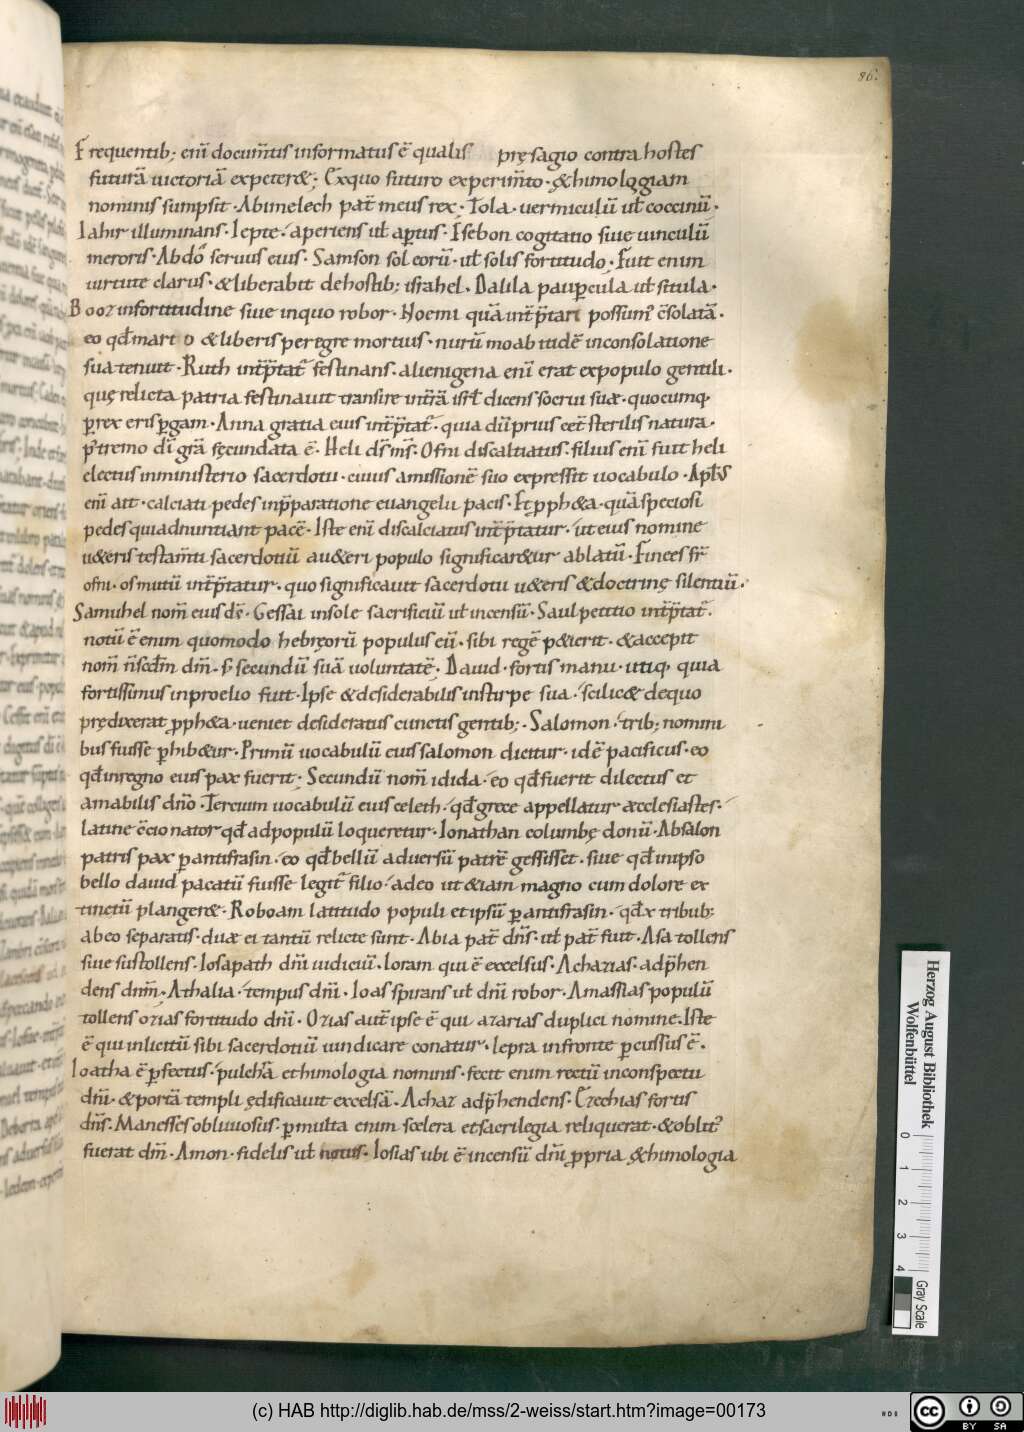 86.
Frequentib; eni᷑ docum̅tis informatus ē qualis pręsagio contra hostes
futurā uictoriā expeteret&; Exquo futuro experim̅to · &himologiam
nominis sumpsit · Abimelech pat̅ meus rex · Tola · uermiculū ut̅ coccinū ·
Iahir illuminans · Iepte · aperiens ut̅ aptus · Esebon cogitatio siue uinculū
meroris · Abdō seruus eius · Samson sol eorū · ut̅ solis fortitudo · Fuit enim
uirtute clarus · &liberabit dehostib; israhel · Dalila paupercula ut̅ situla ·
Booz infortitudine siue inquo robor · Noemi quā int̅p̅tari possum᾽ c̄solatā ·
eo qd̅ marito &liberis peregre mortuis · nurū moabitidē inconsolatione
sua tenuit · Ruth int̅p̅tat᾽ festinans · alienigena enī erat expopulo gentili ·
quę relicta patria festinauit transire int̅rā isrl̅ dicens socrui suæ · quocumq·
p̅rex eris p̅gam · Anna gratia eius int̅p̅tat᾽ · quia dū prius eet̅ sterilis natura ·
p᾽tremo dī grā fęcundata ē · Heli ds̅ ms̅ · Ofni discalciatus · filius enī fuit heli
electus inministerio sacerdotii · cuius amissionē suo expressit uocabulo · Apl̅s
enī ait · calciati pedes inp̅paratione euangelii pacis · Et p̱ph&a · quā speciosi
pedes quiadnuntiant pacē · Iste enī discalciatus int̅p̅tatur · ut eius nomine
u&eris testam̅ti sacerdotiū au&eri populo significar&ur ablatū · Finees fr̅
ofni · os mutū int̅p̅tatur · quo significauit sacerdotii u&eris &doctrinę silentiū ·
Samuhel nom̅ eius ds̅ · Gessai insole sacrificiū ut̅ incensū · Saul petitio int̅p̅tat᾽ ·
notū ē enim quomodo hebręorū populus eū · sibi regē p&ierit · &accepit
nom̅ n̅ scdm̅ dm̅ · s; secundū suā uoluntatē · Dauid · fortis manu · utiq· quia
fortissimus inproelio fuit · Ipse &desiderabilis instirpe sua · scilic& dequo
prędixerat p̱ph&a · ueniet desideratus cunctis gentib; · Salomon · trib; nomini
bus fuisse p̱hib&ur · Primū uocabulū eius salomon dicitur · idē pacificus · eo
qd̅ inregno eius pax fuerit · Secundū nom̅ idida · eo qd̅ fuerit dilectus et
amabilis dn̅o · Tercium uocabulū eius celeth · qd̅ grece appellatur æcclesiastes ·
latine c̄cionator qd̅ adpopulū loqueretur · Ionathan columbę donū · Absalon
patris pax p̱ antifrasin · eo qd̅ bellū aduersū patrē gessisset · siue qd̅ inipso
bello dauid pacatū fuisse legit᾽ filio · adeo ut &iam magno cum dolore ex
tinctū planger& · Roboam latitudo populi et ipsū p̱ antifrasin · qd̅ x tribub;
abeo separatis · duæ ei tantū relicte sunt · Abia pat̅ dn̅s · ut̅ pat̅ fuit · Asa tollens
siue sustollens · Iosapath dn̅i iudiciū · Ioram qui ē excelsus · Achazias · adp̅hen
dens dnm̅ · Athalia · tempus dn̅i · Ioas spirans ut̅ dn̅i robor · Amassias populū
tollens ozias fortitudo dn̅i · Ozias aut̅ ipse ē qui azarias duplici nomine · Iste
ē qui inlicitū sibi sacerdotiū uindicare conatur · lepra infronte p̱cussus ē ·
Ioatha ē p̱fectus · pulchrā ethimologia nominis · fecit enim rectū inconspectu
dn̅i · &portā templi ędificauit excelsā · Achaz adp̅hendens · Ezechias fortis
dn̅s · Manesses obliuiosus · p̱multa enim scelera etsacrilegia reliquerat · &oblit᾽
fuerat dm̅ · Amon · fidelis ut̅ notus · Iosias ubi ē incensū dn̅i p̱pria &himologia
Herzog August Bibliothek
Wolfenbüttel
0 1 2 3 4
Gray Scale
(c) HAB http://diglib.hab.de/mss/2-weiss/start.htm?image=00173
cc BY SA